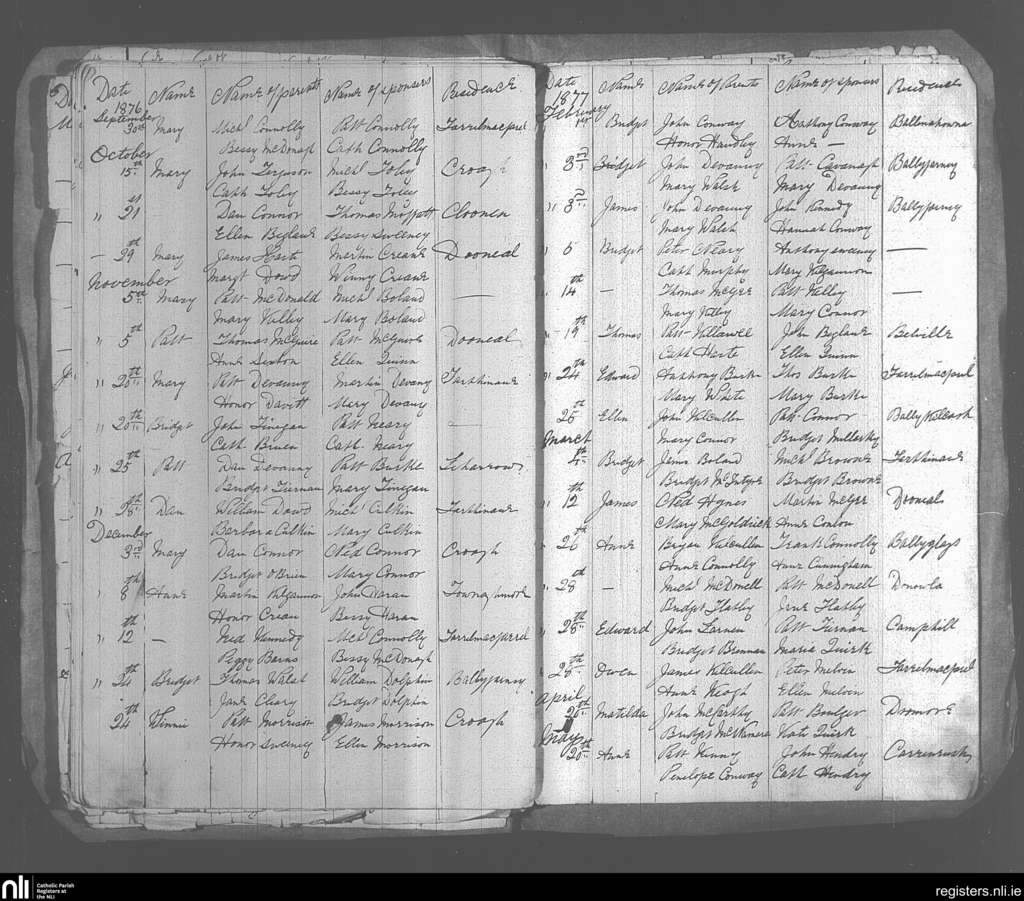 Date Name Name of parents Name of sponsors Residence
1876
September
30th Mary Michl Connolly Patt Connolly Farrelmacfarrel
Bessy McDonagh Cath Connolly
October
15th Mary John Ferguson Michl Foley Croagh
Cath Foley Bessy Foley
" 21st Dan Connor Thomas Moffatt Cloonen
Ellen Beglane Bessy Sweeney
– 29th Mary James Hart Martin Creane Dooneal
Margt Dowd Winny Creane
November
5th Mary Patt McDonald Michl Boland —
Mary Kelley Mary Boland
" 5th Patt Thomas McGuire Patt McGuire Dooneal
Anne Sexton Ellen Quinn
" 20th Mary Patt Devanny Martin Devany Farthinane
Honor Davitt Mary Devany
" 20th Bridget John Finegan Patt Neary —
Cath Bruen Cath Neary
" 25th Patt Dan Devanny Patt Burke Leharrow
Bridget Tiernan Mary Finegan
" 28th Dan William Dowd Michl Culkin Farthinane
Barbara Culkin Mary Culkin
December
3rd Mary Dan Connor Ned Connor Croagh
Bridget O'Brien Mary Connor
" 8th Anne Martin Kilgannon John Haran
Honor Crean Bessy Haran
" 12th — Ned Kennedy Michl Connolly Farrelmacfarrel
Peggy Barns Bessy McDonagh
" 24 Bridget Thomas Walsh William Dolphin Ballyfeney
Jane Cleary Bridget Dolphin
24th Winnie Patt Morrison James Morrison Croagh
Honor Sweeney Ellen Morrison
Date Name Name of Parents Name of sponsors Residence
1877
February
1st Bridget John Conway Anthony Conway Ballinahowna
Honor Handley Anne —
" 3rd Bridget John Devanny Patt Cavanagh Ballyfeney
Mary Walsh Mary Devanny
" 3rd James John Devanny John Kennedy Ballyfeney
Mary Walsh Hannah Conway
" 5 Bridget Peter Neary Anthony Sweeney —
Cath Murphy Mary Kilgannon
" 14th — Thomas McGee Patt Kelley —
Mary Kelley Mary Connor
" 19th Thomas Patt Killawee John Beglane Belville
Cath Harte Ellen Quinn
" 24th Edward Anthony Burke Thos Burke Farrelmacfarrel
Mary White Mary Burke
25 Ellen John Kilcullen Patt Connor
Mary Connor Bridget Mullarky
March
4th Bridget James Boland Michl Browne Farthinane
Bridget McIntyre Bridget Browne
" 12 James Ned Hynes Martin McGee Dooneal
Mary McGoldrick Anne Conlon
" 26th Anne Bryan Kilcullen Frank Connolly Ballyglass
Anne Connolly Anne Cunningham
" 28th — Michl McDonell Patt McDonell
Bridget Flatley Jane Flatley
" 28th Edward John Larnen Patt Tiernan Camphill
Bridget Brennan Maria Quirk
" 28th Owen James Kilcullen Peter Melvin Farrelmacfarrel
Anne Keogh Ellen Melvin
April
20th Matilda John McCarthy Patt Boulger Dromore
Bridget McNamera Kate Quirk
May
20th Anne Patt Kenny John Hendry
Penelope Conway Cath Hendry
nli Catholic Parish
Registers at
the NLI
registers.nli.ie